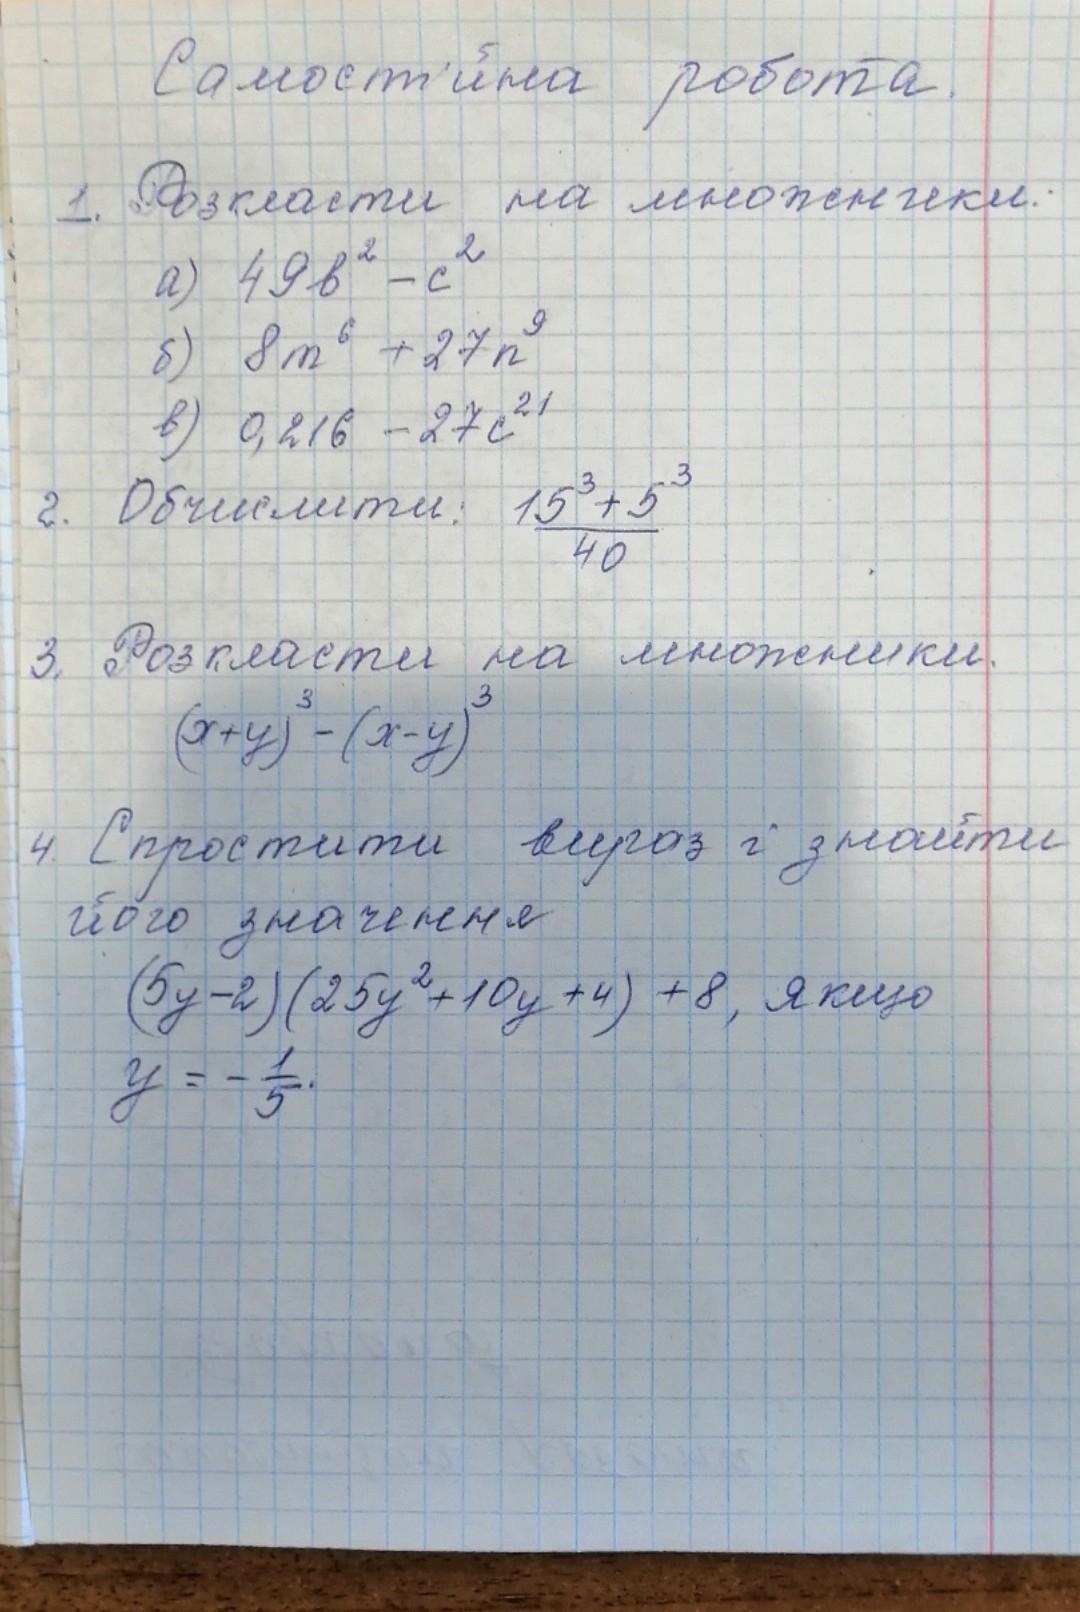 Самостійна робота.
1. Розкласти на множники:
а) 49b² - c²
б) 8m⁶ + 27n⁹
в) 0,216 - 27c²¹
2. Обчислити: (15³ + 5³)/40
3. Розкласти на множники.
(x+y)³ - (x-y)³
4. Спростити вираз і знайти
його значення
(5y-2)(25y²+10y+4) + 8, якщо
y = -1/5.